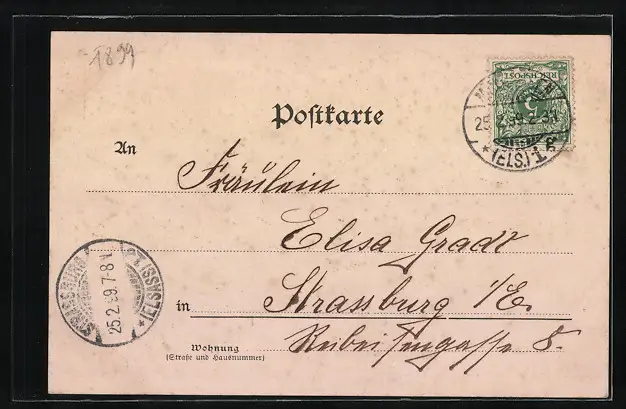 1899
REICHSPOST
5
25.2.99.2-3N
*(ELS.)1.
Postkarte
An
Fräulein
Elisa Gradt
in Strassburg i/E.
STRASSBURG
(ELSASS)
25.2.99.7-8N
Wohnung
(Straße und Hausnummer)
8.